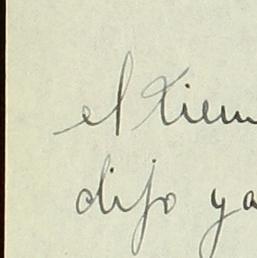 el tiem
dijo ya